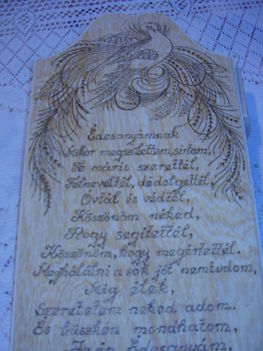 Édesanyámnak
Mikor megszülettem, sírtam,
Te máris szerettél,
Felneveltél, dédelgettél,
Óvtál és védtél,
Köszönöm néked,
Hogy segítettél,
Köszönöm, hogy megértettél.
Meghálálni a sok jót nem tudom,
Míg élek,
Szeretetem néked adom.
És büszkén mondhatom,
Édesanyám,